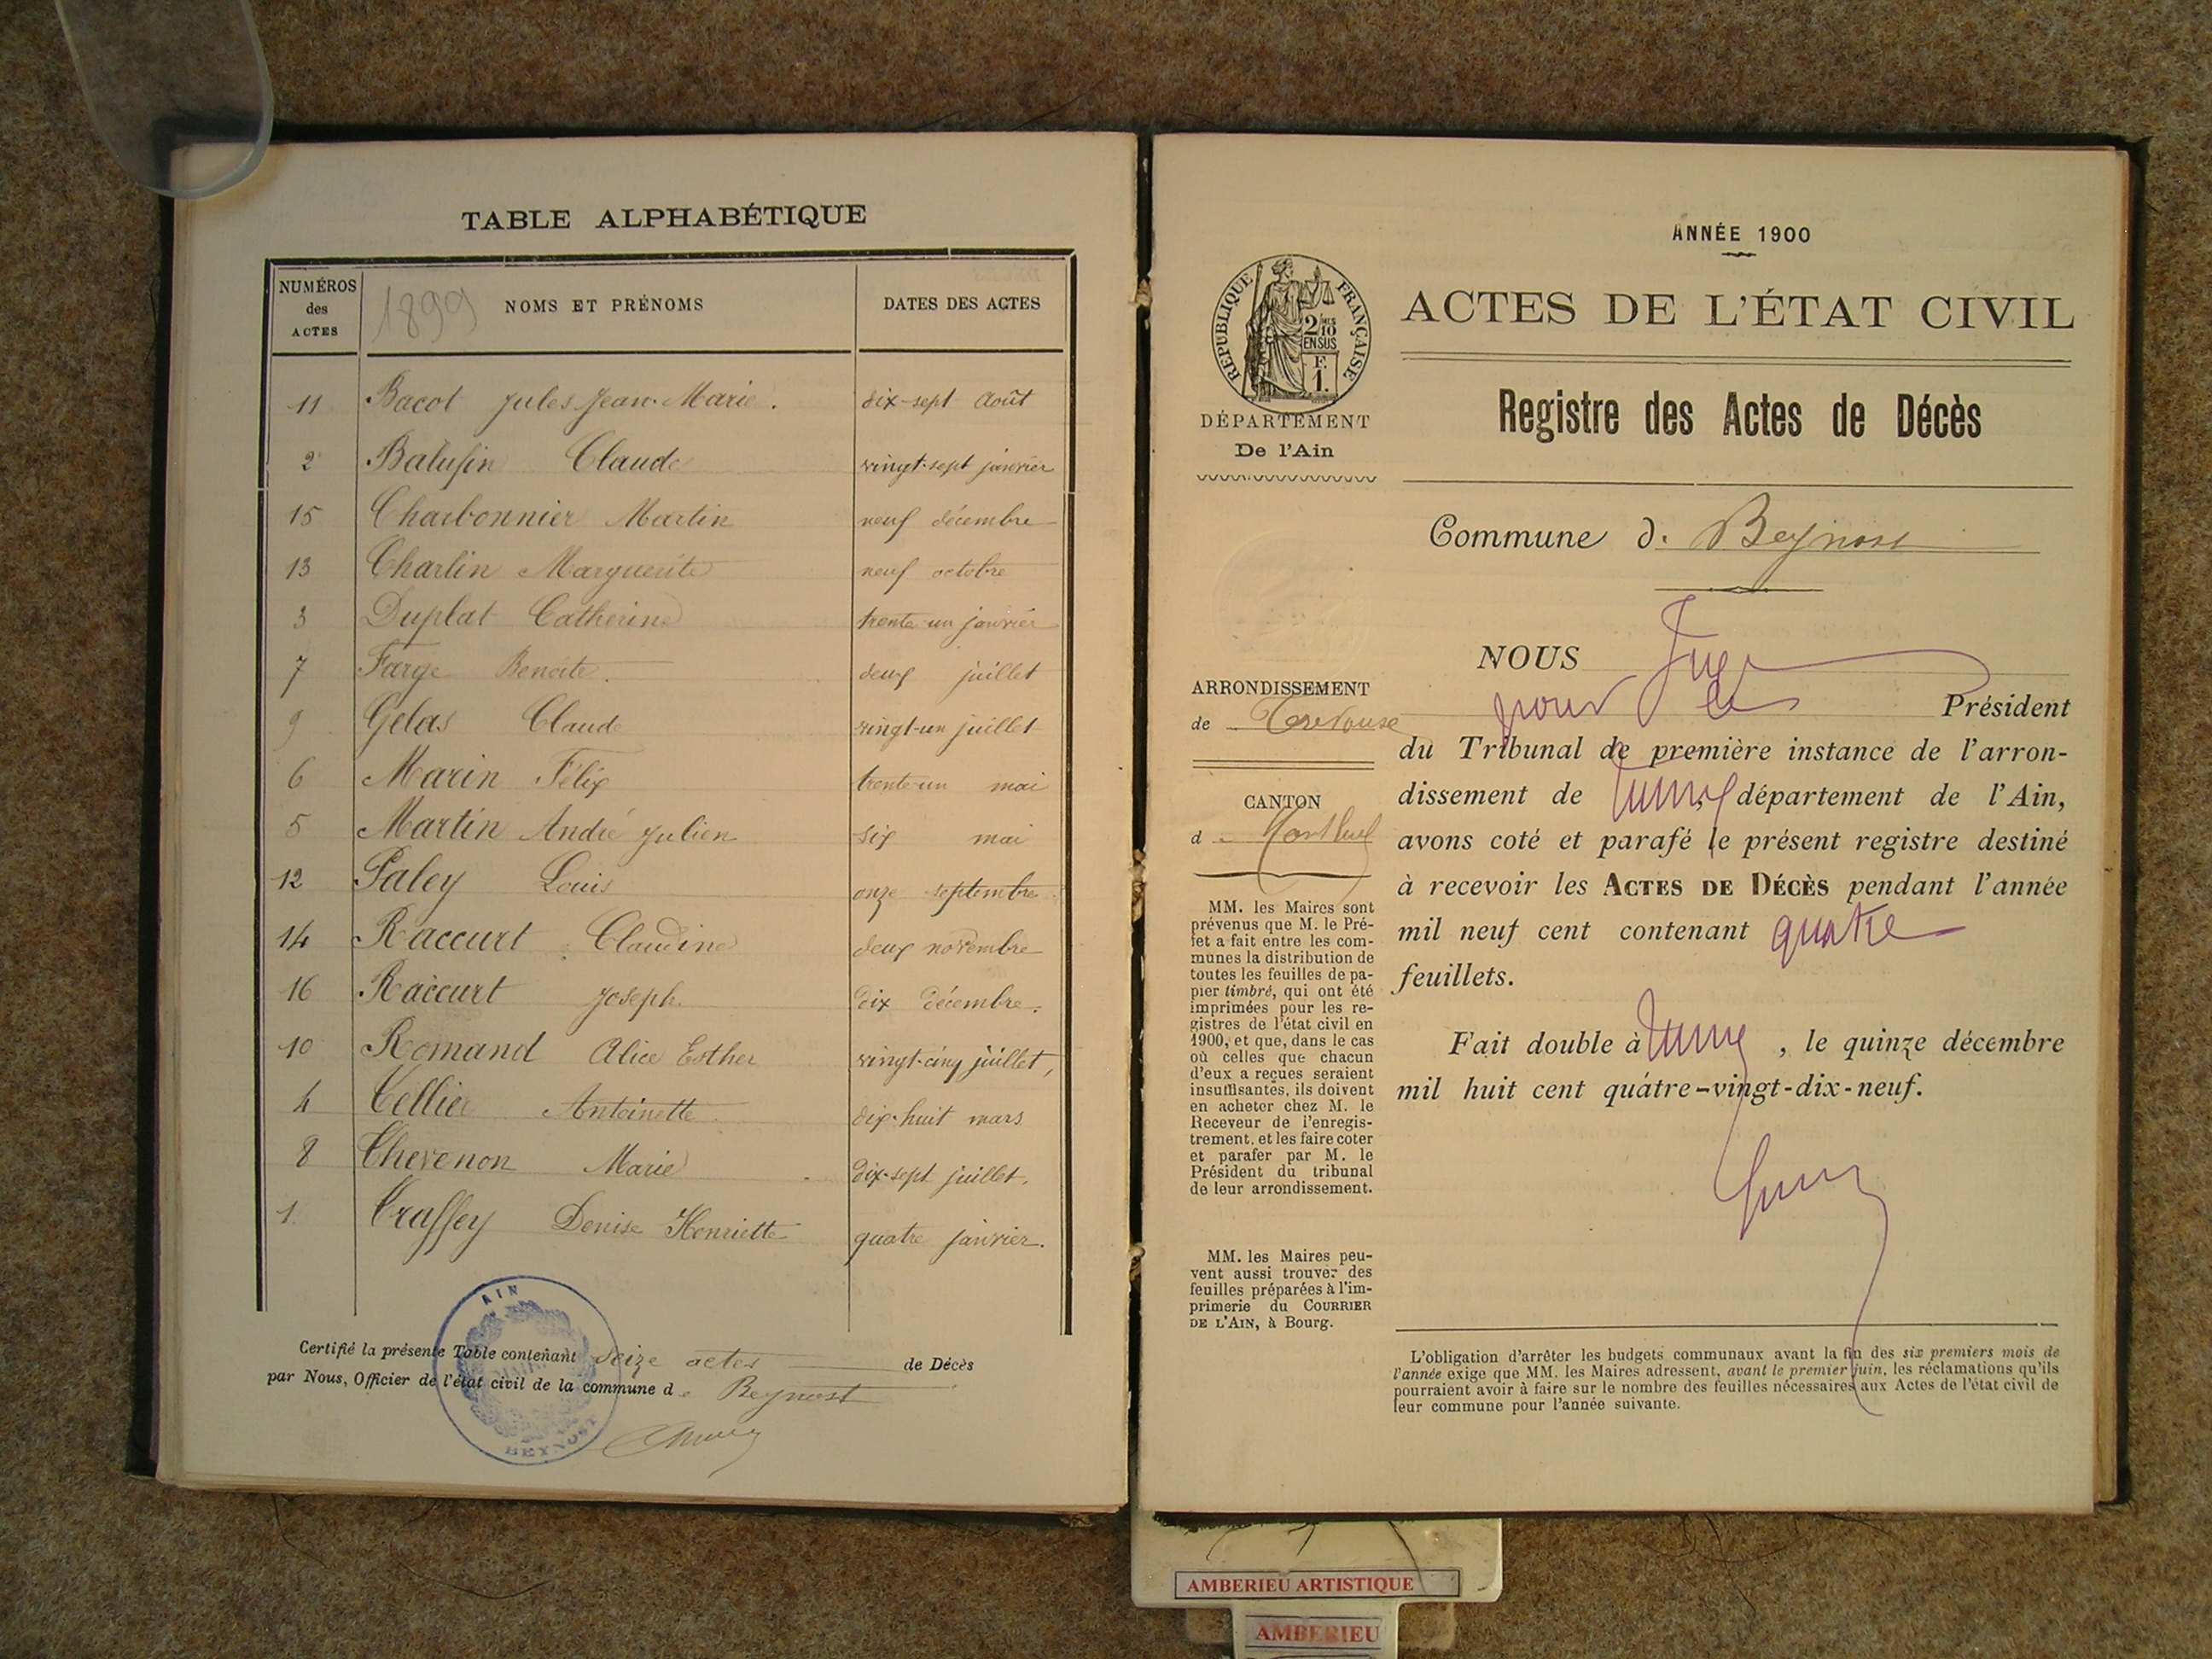 TABLE ALPHABÉTIQUE
NUMÉROS des ACTES
1899
NOMS ET PRÉNOMS
DATES DES ACTES
11 Bacot Jules Jean-Marie. dix-sept Août
2 Balufin Claude vingt-sept janvier
15 Charbonnier Martin neuf décembre
13 Charlin Marguerite neuf octobre
3 Duplat Catherine trente-un janvier
7 Farge Benoite deux juillet
9 Gelas Claude vingt-un juillet
6 Marin Félix trente-un mai
5 Martin André Julien six mai
12 Paley Louis onze septembre
14 Raccurt Claudine deux novembre
16 Raccurt Joseph dix décembre.
10 Romand Alice Esther vingt-cinq juillet,
4 Tellier Antoinette dix-huit mars
8 Thevenon Marie dix-sept juillet.
1. Traffey Denise Henriette quatre janvier.
Certifié la présente Table contenant seize actes de Décès
par Nous, Officier de l'état civil de la commune de Beynost
AIN
BEYNOST
ANNÉE 1900
RÉPUBLIQUE FRANÇAISE
2/10 EN SUS
F. 1.
DÉPARTEMENT
De l'Ain
ACTES DE L'ÉTAT CIVIL
Registre des Actes de Décès
Commune d. Beynost
ARRONDISSEMENT
de Trevoux
CANTON
d Montluel
MM. les Maires sont
prévenus que M. le Pré-
fet a fait entre les com-
munes la distribution de
toutes les feuilles de pa-
pier timbré, qui ont été
imprimées pour les re-
gistres de l'état civil en
1900, et que, dans le cas
où celles que chacun
d'eux a reçues seraient
insuffisantes, ils doivent
en acheter chez M. le
Receveur de l'enregis-
trement, et les faire coter
et parafer par M. le
Président du tribunal
de leur arrondissement.
MM. les Maires peu-
vent aussi trouver des
feuilles préparées à l'im-
primerie du COURRIER
DE L'AIN, à Bourg.
NOUS Juge
pour le Président
du Tribunal de première instance de l'arron-
dissement de département de l'Ain,
avons coté et parafé le présent registre destiné
à recevoir les ACTES DE DÉCÈS pendant l'année
mil neuf cent contenant quatre
feuillets.
Fait double à , le quinze décembre
mil huit cent quatre-vingt-dix-neuf.
L'obligation d'arrêter les budgets communaux avant la fin des six premiers mois de
l'année exige que MM. les Maires adressent, avant le premier juin, les réclamations qu'ils
pourraient avoir à faire sur le nombre des feuilles nécessaires aux Actes de l'état civil de
leur commune pour l'année suivante.
AMBERIEU ARTISTIQUE
AMBERIEU